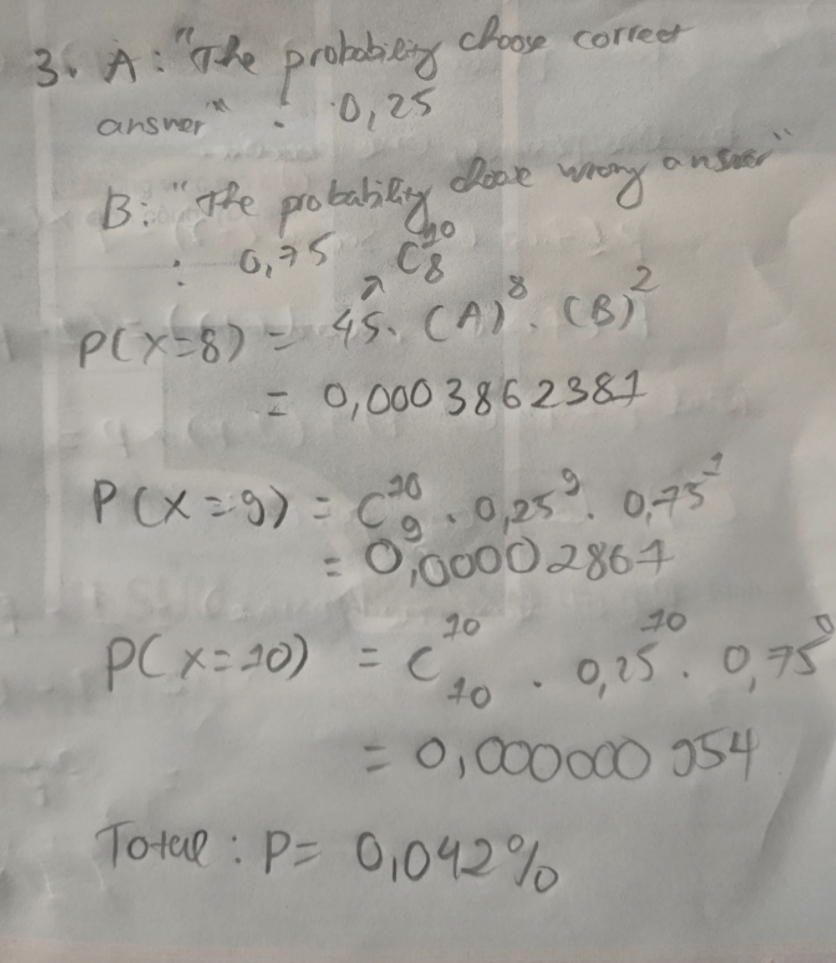 3. A: "The probability choose correct
answer" : 0,25
B: "The probability choose wrong answer"
: 0,75 C₈¹⁰
↗
P(X=8) = 45. (A)⁸. (B)²
= 0,0003862381
P(X=9) = C₉¹⁰ . 0,25⁹. 0,75¹
= 0,00002861
P(X=10) = C₁₀¹⁰ . 0,25¹⁰. 0,75⁰
= 0,000000954
Total : P= 0,042%